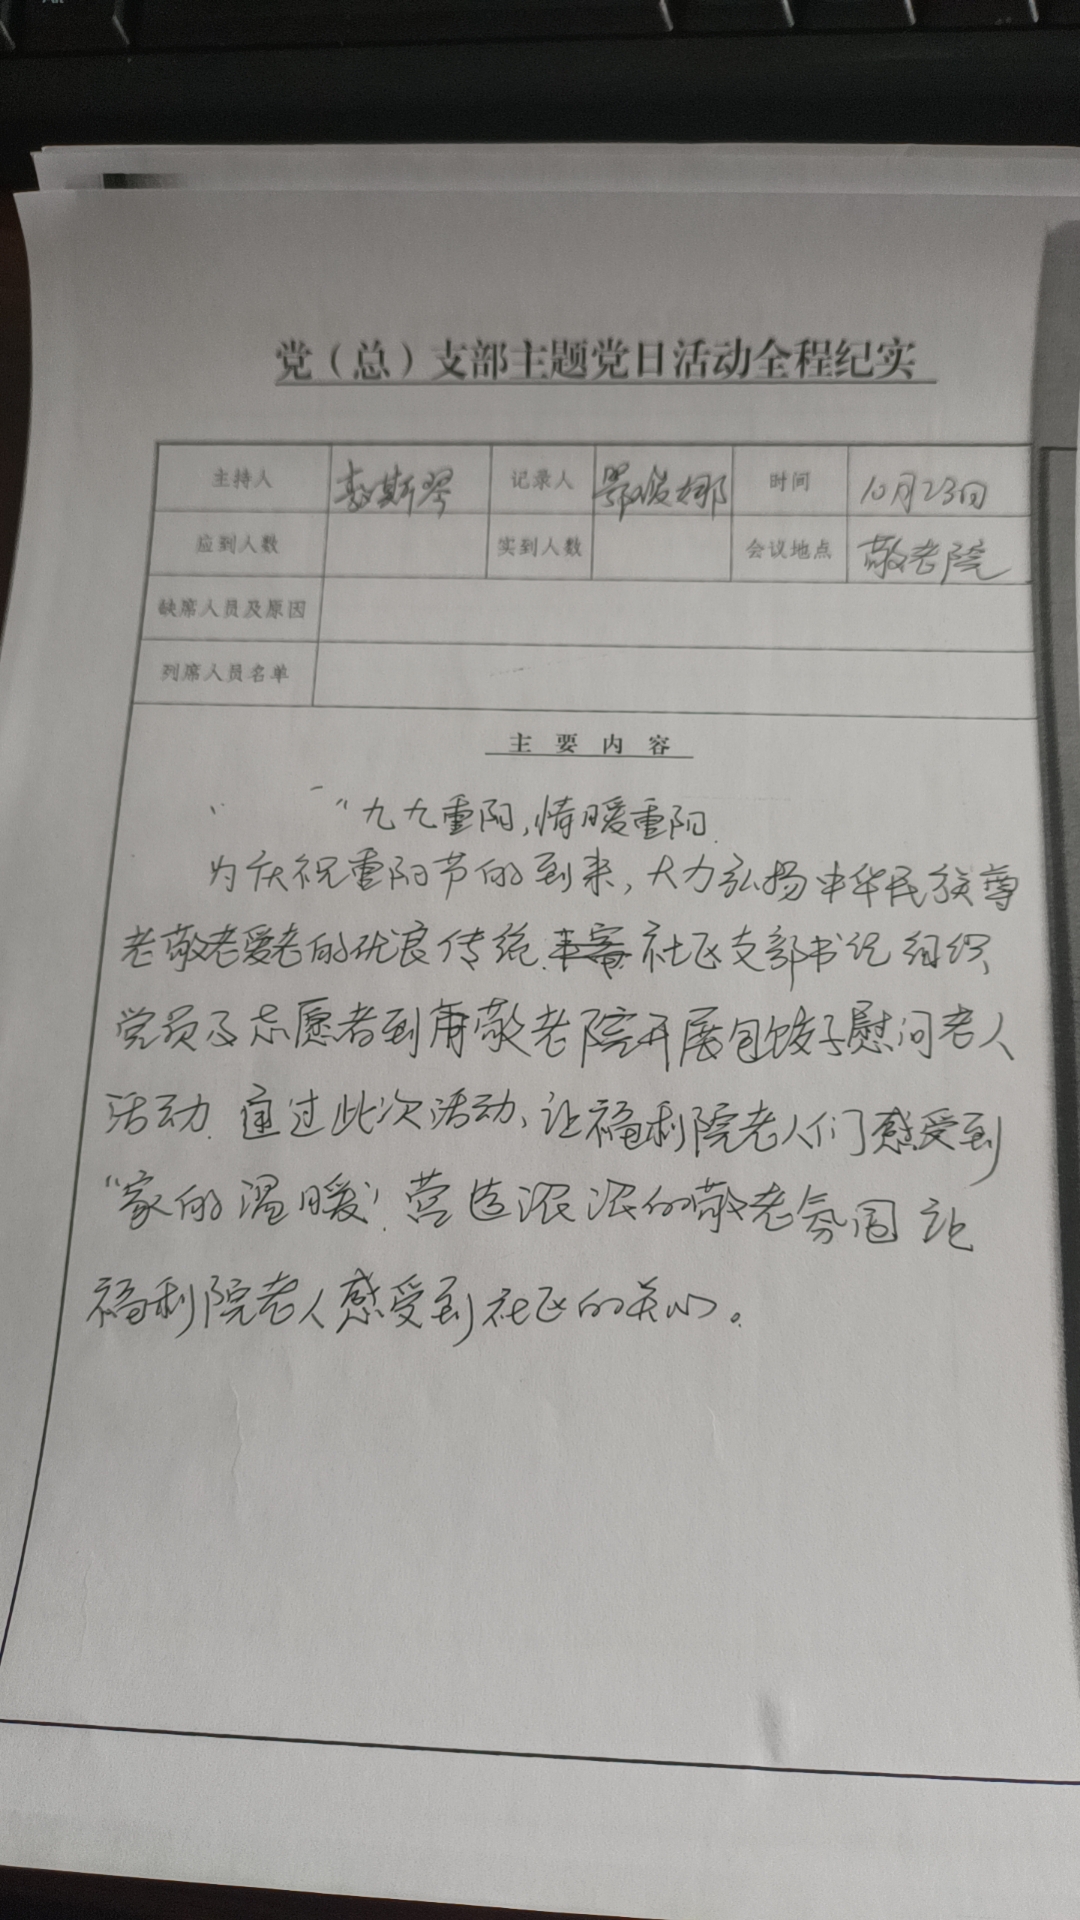 党（总）支部主题党日活动全程纪实
主持人 斯琴 记录人 娜 时间 10月23日
应到人数 实到人数 会议地点 敬老院
缺席人员及原因
列席人员名单
主要内容
“九九重阳,情暖重阳
为庆祝重阳节的到来,大力弘扬中华民族尊
老敬老爱老的优良传统. 社区支部书记组织
党员及志愿者到 敬老院开展包饺子慰问老人
活动. 通过此次活动,让福利院老人们感受到
“家的温暖”.营造浓浓的敬老氛围 让
福利院老人感受到社区的关心。